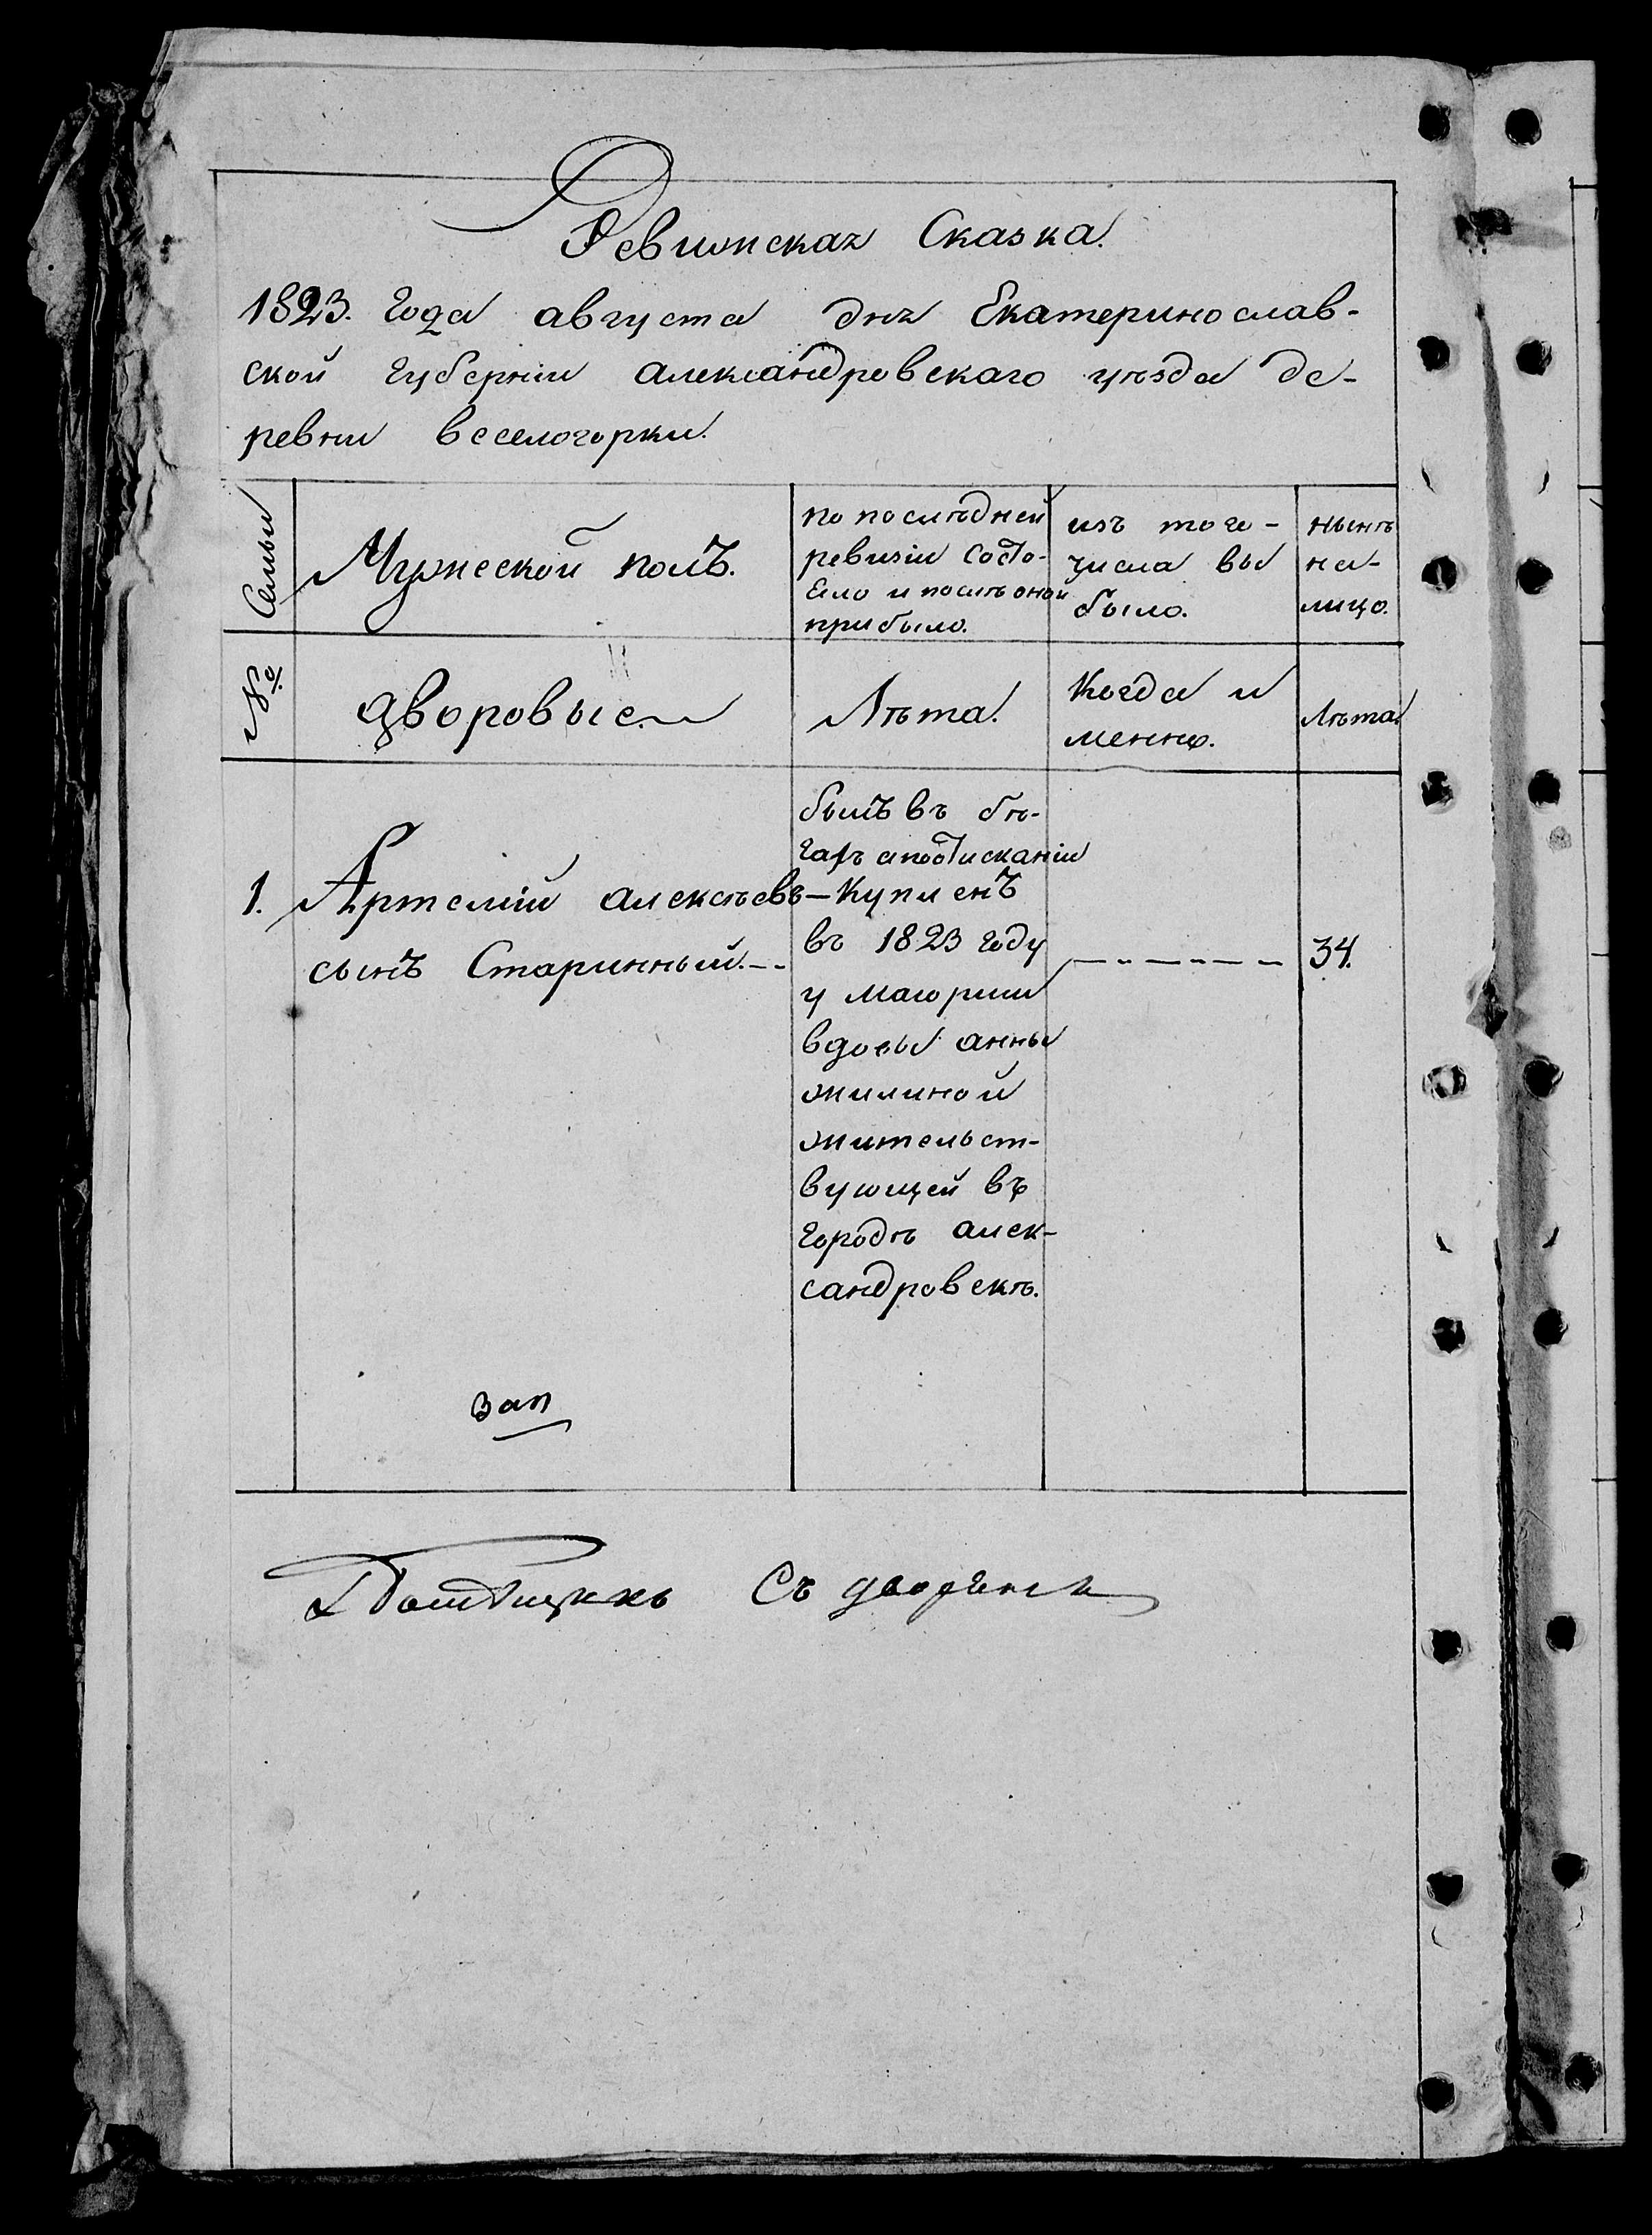 Ревижская Сказка.
1823. года августа дня Екатеринослав-
ской губерніи александровскаго уѣзда де-
ревни веселогорки.
Семьи
Мужеской полъ.
по послѣдней
ревизіи состо-
яло и послѣ оной
прибыло.
изъ того-
числа вы
было.
нынѣ
на-
лицо.
№
дворовые
Лѣта.
Когда и
менно.
Лѣта.
1.
Артемій алексѣевъ
сынъ Старинный.
былъ въ бѣ-
гахъ
Купленъ
въ 1823 году
у маіорши
вдовы анны
жилиной
жительст-
вующей въ
городѣ алек-
сандровскѣ.
34.
зап
Съ